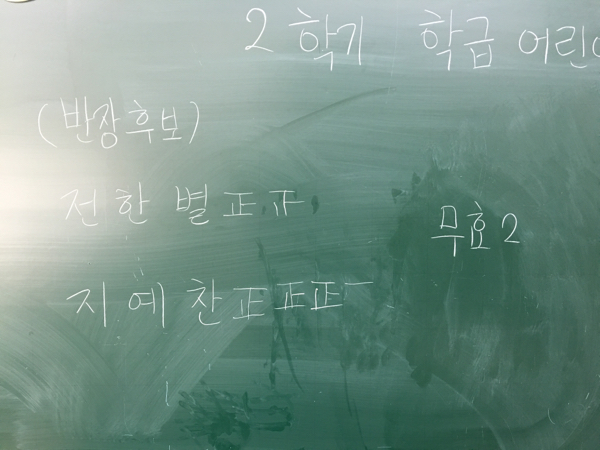 2 학기 학급 어린
(반장후보)
전한별 正
무효 2
지예찬 正正正一